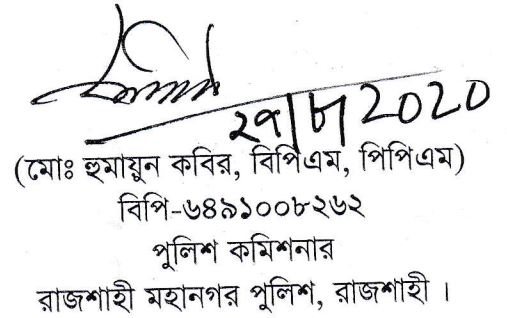 ২৭/৮/2020
(মোঃ হুমায়ুন কবির, বিপিএম, পিপিএম)
বিপি-৬৪৯১০০৮২৬২
পুলিশ কমিশনার
রাজশাহী মহানগর পুলিশ, রাজশাহী ।